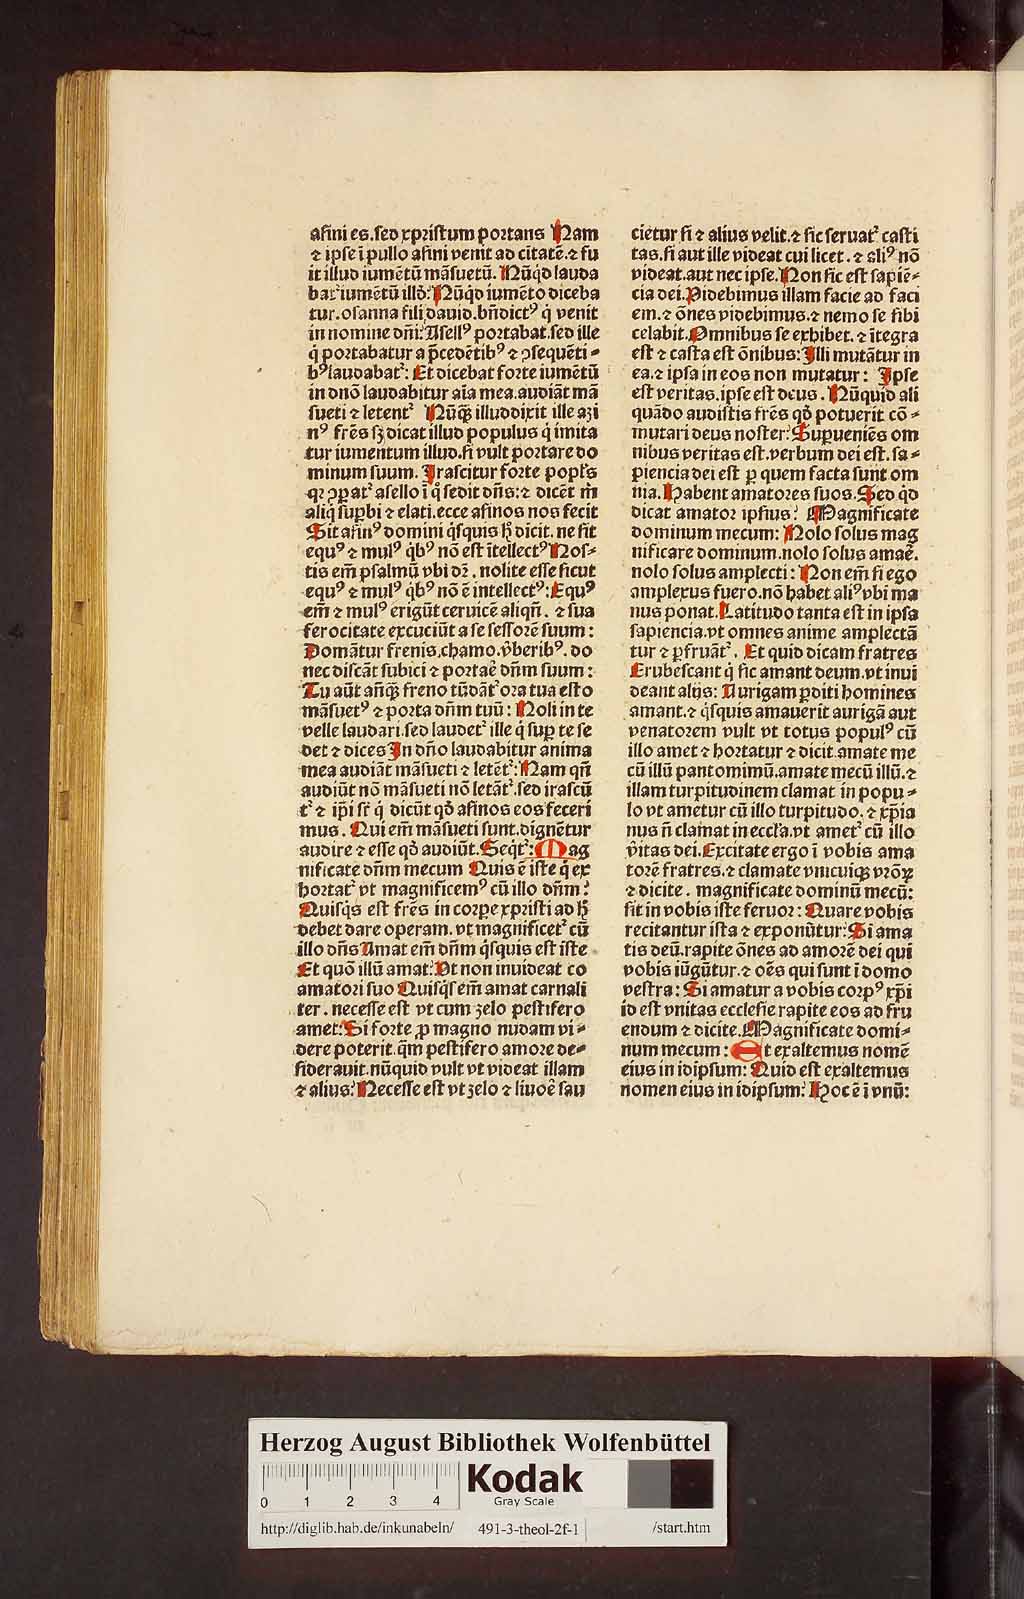 asini es.sed xpristum portans Nam
⁊ ipse ī pullo asini venit ad citatē.⁊ fu
it illud iumētū māsuetū. Nūqd lauda
batᷣ iumētū illd: Nūqd iumēto diceba
tur.osanna fili dauid.bn̄dictꝰ q̇ venit
in nomine dn̄i: Asellꝰ portabat.sed ille
q̇ portabatur a p̄cedētibꝰ ⁊ ꝯsequēti-
bꝰ laudabatᷣ: Et dicebat forte iumētū
in dnō laudabitur aīa mea.audiāt mā
sueti ⁊ letentᷣ Nūqꝫ illud dixit ille azi
nꝰ frēs sꝫ dicat illud populus q̇ imita
tur iumentum illud.si vult portare do
minum suum. Irascitur forte popl's
qꝛ ꝯꝑatᷣ asello ī q̊ sedit dn̄s: ⁊ dicēt m̄
aliq̇ suꝑbi ⁊ elati.ecce asinos nos fecit
Sit asinꝰ domini q̇squis hꝫ dicit. ne sit
equꝰ ⁊ mulꝰ qbꝰ nō est ītellectꝰ Nos-
tis em̄ psalmū vbi dꝛ. nolite esse sicut
equꝰ ⁊ mulꝰ qbꝰ nō ē intellectꝰ: Equꝰ
em̄ ⁊ mulꝰ erigūt ceruicē aliqn̄. ⁊ sua
ferocitate excuciūt a se sessorē suum:
Domātur frenis.chamo.v̄beribꝰ. do
nec discāt subici ⁊ portaē dn̄m suum:
Tu aūt an̄qꝫ freno tūdātᷣ ora tua esto
māsuetꝰ ⁊ porta dn̄m tuū: Noli in te
velle laudari.sed laudetᷣ ille q̇ suꝑ te se
det ⁊ dices In dn̄o laudabitur anima
mea audiāt māsueti ⁊ letētᷣ: Nam qn̄
audiūt nō māsueti nō letātᷣ.sed irascū
tᷣ ⁊ ip̄i sr̄ q̇ dicūt qd̄ asinos eos feceri
mus. Qui em̄ māsueti sunt.dignētur
audire ⁊ esse qd̄ audiūt. Seqtᷣ: Mag
nificate dn̄m mecum Quis ē iste q̇ ex
hortatᷣ vt magnificemꝰ cū illo dn̄m:
Quisq̇s est frēs in corpe xpristi ad hꝫ
debet dare operam. vt magnificetᷣ cū
illo dn̄s Amat em̄ dn̄m q̇squis est iste
Et quō illū amat: Vt non inuideat co
amatori suo Quisq̇s em̄ amat carnali
ter. necesse est vt cum zelo pestifero
amet: Si forte ꝓ magno nudam vi-
dere poterit.q̄m pestifero amore de-
siderauit.nūquid vult vt videat illam
⁊ alius: Necesse est vt zelo ⁊ liuoē sau
cietur si ⁊ alius velit.⁊ sic seruatᷣ casti
tas.si aut ille videat cui licet. ⁊ aliꝰ nō
videat.aut nec ipse. Non sic est sapiē-
cia dei. Videbimus illam facie ad faci
em.⁊ ōnes videbimus.⁊ nemo se sibi
celabit. Omnibus se exhibet. ⁊ ītegra
est ⁊ casta est ōnibus: Illi mutātur in
ea.⁊ ipsa in eos non mutatur: Ipse
est veritas.ipse est deus. Nūquid ali
quādo audistis frēs qd̄ potuerit cō-
mutari deus noster: Supueniēs om
nibus veritas est.verbum dei est.sa-
piencia dei est ꝑ quem facta sunt om
nia. Habent amatores suos. Sed q̇d
dicat amator ipsius: Magnificate
dominum mecum: Nolo solus mag
nificare dominum.nolo solus amaē.
nolo solus amplecti: Non em̄ si ego
amplexus fuero.nō habet aliꝰ vbi ma
nus ponat. Latitudo tanta est in ipsa
sapiencia.vt omnes anime amplectā
tur ⁊ ꝑfruātᷣ. Et quid dicam fratres
Erubescant q̇ sic amant deum.vt inui
deant alijs: Aurigam ꝑditi homines
amant.⁊ q̇squis amauerit aurigā aut
venatorem vult vt totus populꝰ cū
illo amet ⁊ hortatur ⁊ dicit.amate me
cū illū pantomimū.amate mecū illū.⁊
illam turpitudinem clamat in popu-
lo vt ametur cū illo turpitudo.⁊ xp̄ia
nus n̄ clamat in eccl'a.vt ametᷣ cū illo
v̄itas dei. Excitate ergo ī vobis ama
torē fratres.⁊ clamate vnicuiqꝫ vrōꝝ
⁊ dicite. magnificate dominū mecū:
sit in vobis iste feruor: Quare vobis
recitantur ista ⁊ exponūtur: Si ama
tis deū.rapite ōnes ad amorē dei qui
vobis iūgūtur.⁊ oēs qui sunt ī domo
vestra: Si amatur a vobis corpꝰ xp̄i
id est vnitas ecclesie rapite eos ad fru
endum ⁊ dicite. Magnificate domi-
num mecum: Et exaltemus nomē
eius in idipsum: Quid est exaltemus
nomen eius in idipsum: Hoc ē ī vnū:
Herzog August Bibliothek Wolfenbüttel
0 1 2 3 4
Kodak
Gray Scale
http://diglib.hab.de/inkunabeln/ 491-3-theol-2f-1 /start.htm